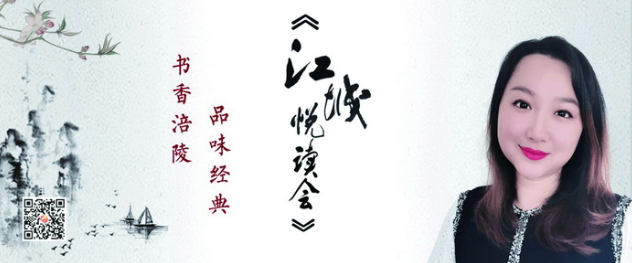 《江城悦读会》
品味经典
书香涪陵